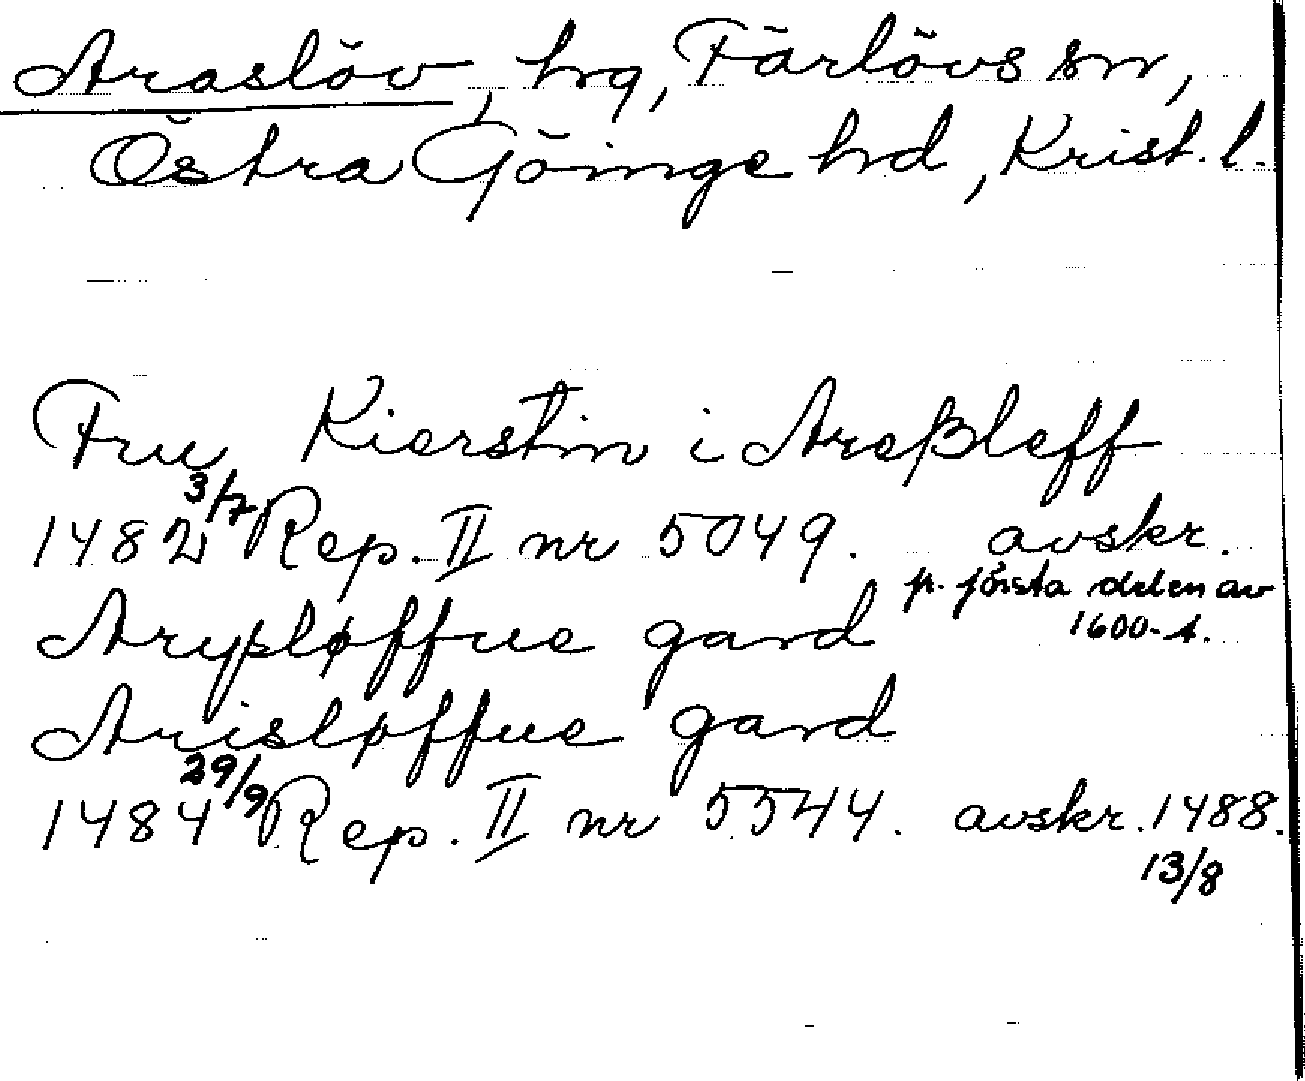 Araslöv, hrg, Färlövs sn,
Östra Göinge hd, Krist. l.
Fru Kierstin i Areßleff
1482 3/7 Rep. II nr 5049. avskr.
fr. första delen av
1600-t.
Arysløffue gard
Arisløffue gard
1484 29/9 Rep. II nr 5544. avskr. 1488.
13/8